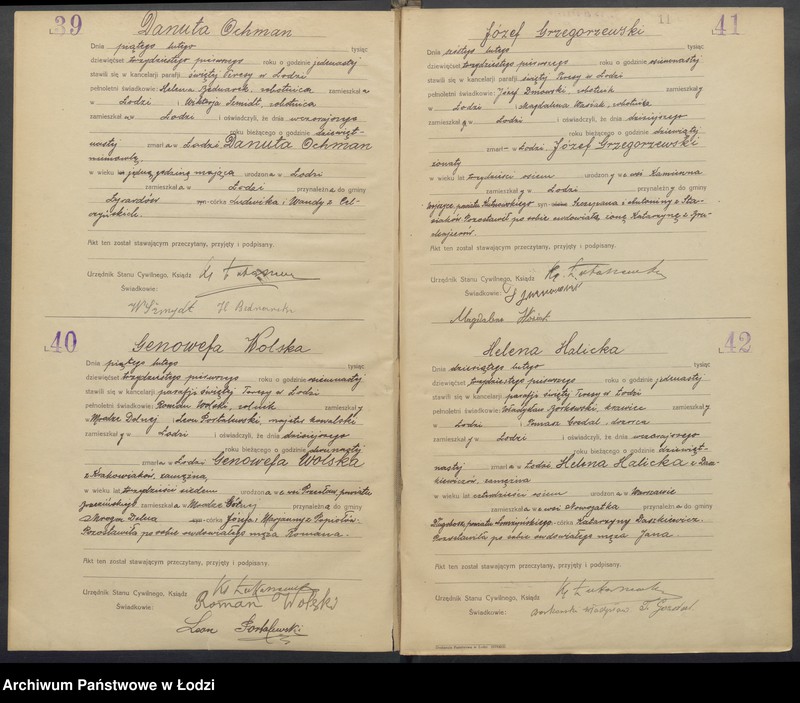 39 Danuta Ochman
Dnia piątego lutego tysiąc
dziewięćset trzydziestego pierwszego roku o godzinie jedenastej
stawili się w kancelarji parafji świętej Teresy w Łodzi
pełnoletni świadkowie: Helena Bednarek, robotnica zamieszkała
w Łodzi i Wiktorja Szmidt, robotnica
zamieszkała w Łodzi i oświadczyli, że dnia wczorajszego
roku bieżącego o godzinie dziewięt-
nastej zmarła w Łodzi Danuta Ochman
niemowlę,
w wieku jedną godzinę mająca urodzona w Łodzi
zamieszkała w Łodzi przynależna do gminy
Żyrardów córka Ludwika i Wandy z
Akt ten został stawającym przeczytany, przyjęty i podpisany.
Urzędnik Stanu Cywilnego, Ksiądz
Świadkowie:
W Szmydt H Bednarek
40 Genowefa Wolska
Dnia piątego lutego tysiąc
dziewięćset trzydziestego pierwszego roku o godzinie siemnastej
stawili się w kancelarji parafji świętej Teresy w Łodzi
pełnoletni świadkowie: Roman Wolski, rolnik zamieszkały
w Mrodze Dolnej i Leon Portalewski, majster kowalski
zamieszkały w Łodzi i oświadczyli, że dnia dzisiejszego
roku bieżącego o godzinie dwunastej
zmarła w Łodzi Genowefa Wolska
z Krakowiaków, zamężna,
w wieku lat trzydzieści siedem urodzona we wsi powiatu
brzezińskiego zamieszkała w Mrodze Górnej przynależna do gminy
Mroga Dolna córka Józefa i Marjanny
Pozostawiła po sobie owdowiałego męża Romana.
Akt ten został stawającym przeczytany, przyjęty i podpisany.
Urzędnik Stanu Cywilnego, Ksiądz
Świadkowie: Roman Wolski
Leon Portalewski
Józef Grzegorzewski 41
Dnia szóstego lutego tysiąc
dziewięćset trzydziestego pierwszego roku o godzinie siemnastej
stawili się w kancelarji parafji świętej Teresy w Łodzi
pełnoletni świadkowie: Józef robotnik zamieszkały
w Łodzi i Magdalena robotnica
zamieszkały w Łodzi i oświadczyli, że dnia dzisiejszego
roku bieżącego o godzinie dziewiątej
zmarł w Łodzi Józef Grzegorzewski
żonaty
w wieku lat trzydzieści osiem urodzony we wsi Kamienna
zamieszkały w Łodzi przynależny do gminy
powiatu syn Szczepana i Antoniny z
Pozostawił po sobie owdowiałą żonę Katarzynę z
Akt ten został stawającym przeczytany, przyjęty i podpisany.
Urzędnik Stanu Cywilnego, Ksiądz
Świadkowie:
Magdalena
Helena Halicka 42
Dnia dziewiątego lutego tysiąc
dziewięćset trzydziestego pierwszego roku o godzinie jedenastej
stawili się w kancelarji parafji świętej Teresy w Łodzi
pełnoletni świadkowie: Władysław szewc zamieszkały
w Łodzi i Tomasz Gozdal, dozorca
zamieszkały w Łodzi i oświadczyli, że dnia wczorajszego
roku bieżącego o godzinie dziewięt-
nastej zmarła w Łodzi Helena Halicka z Dasz-
kiewiczów, zamężna
w wieku lat czterdzieści osiem urodzona w Warszawie
zamieszkała we wsi przynależna do gminy
powiatu córka Katarzyny Daszkiewicz.
Pozostawiła po sobie owdowiałego męża Jana.
Akt ten został stawającym przeczytany, przyjęty i podpisany.
Urzędnik Stanu Cywilnego, Ksiądz
Świadkowie: T. Gozdal
Archiwum Państwowe w Łodzi